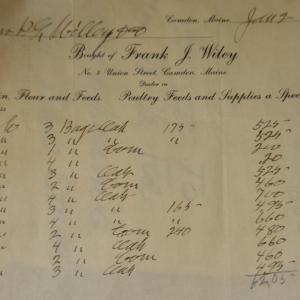 Camden, Maine,
P.G. Willey
Bought of Frank J. Wiley
No. 8 Union Street, Camden, Maine
Dealer in
Flour and Feeds. Poultry Feeds and Supplies a
3 Bags Oats 175- 525-
3 " " " 525-
1 " Corn
" "
3 " Oats 525-
2 " Corn 460
4 " Oats 700
3 " " 165- 495-
4 " " 660
2 " Corn 240 480
4 " Oats 660
2 " Corn 460
3 " Oats 495-
62,05-